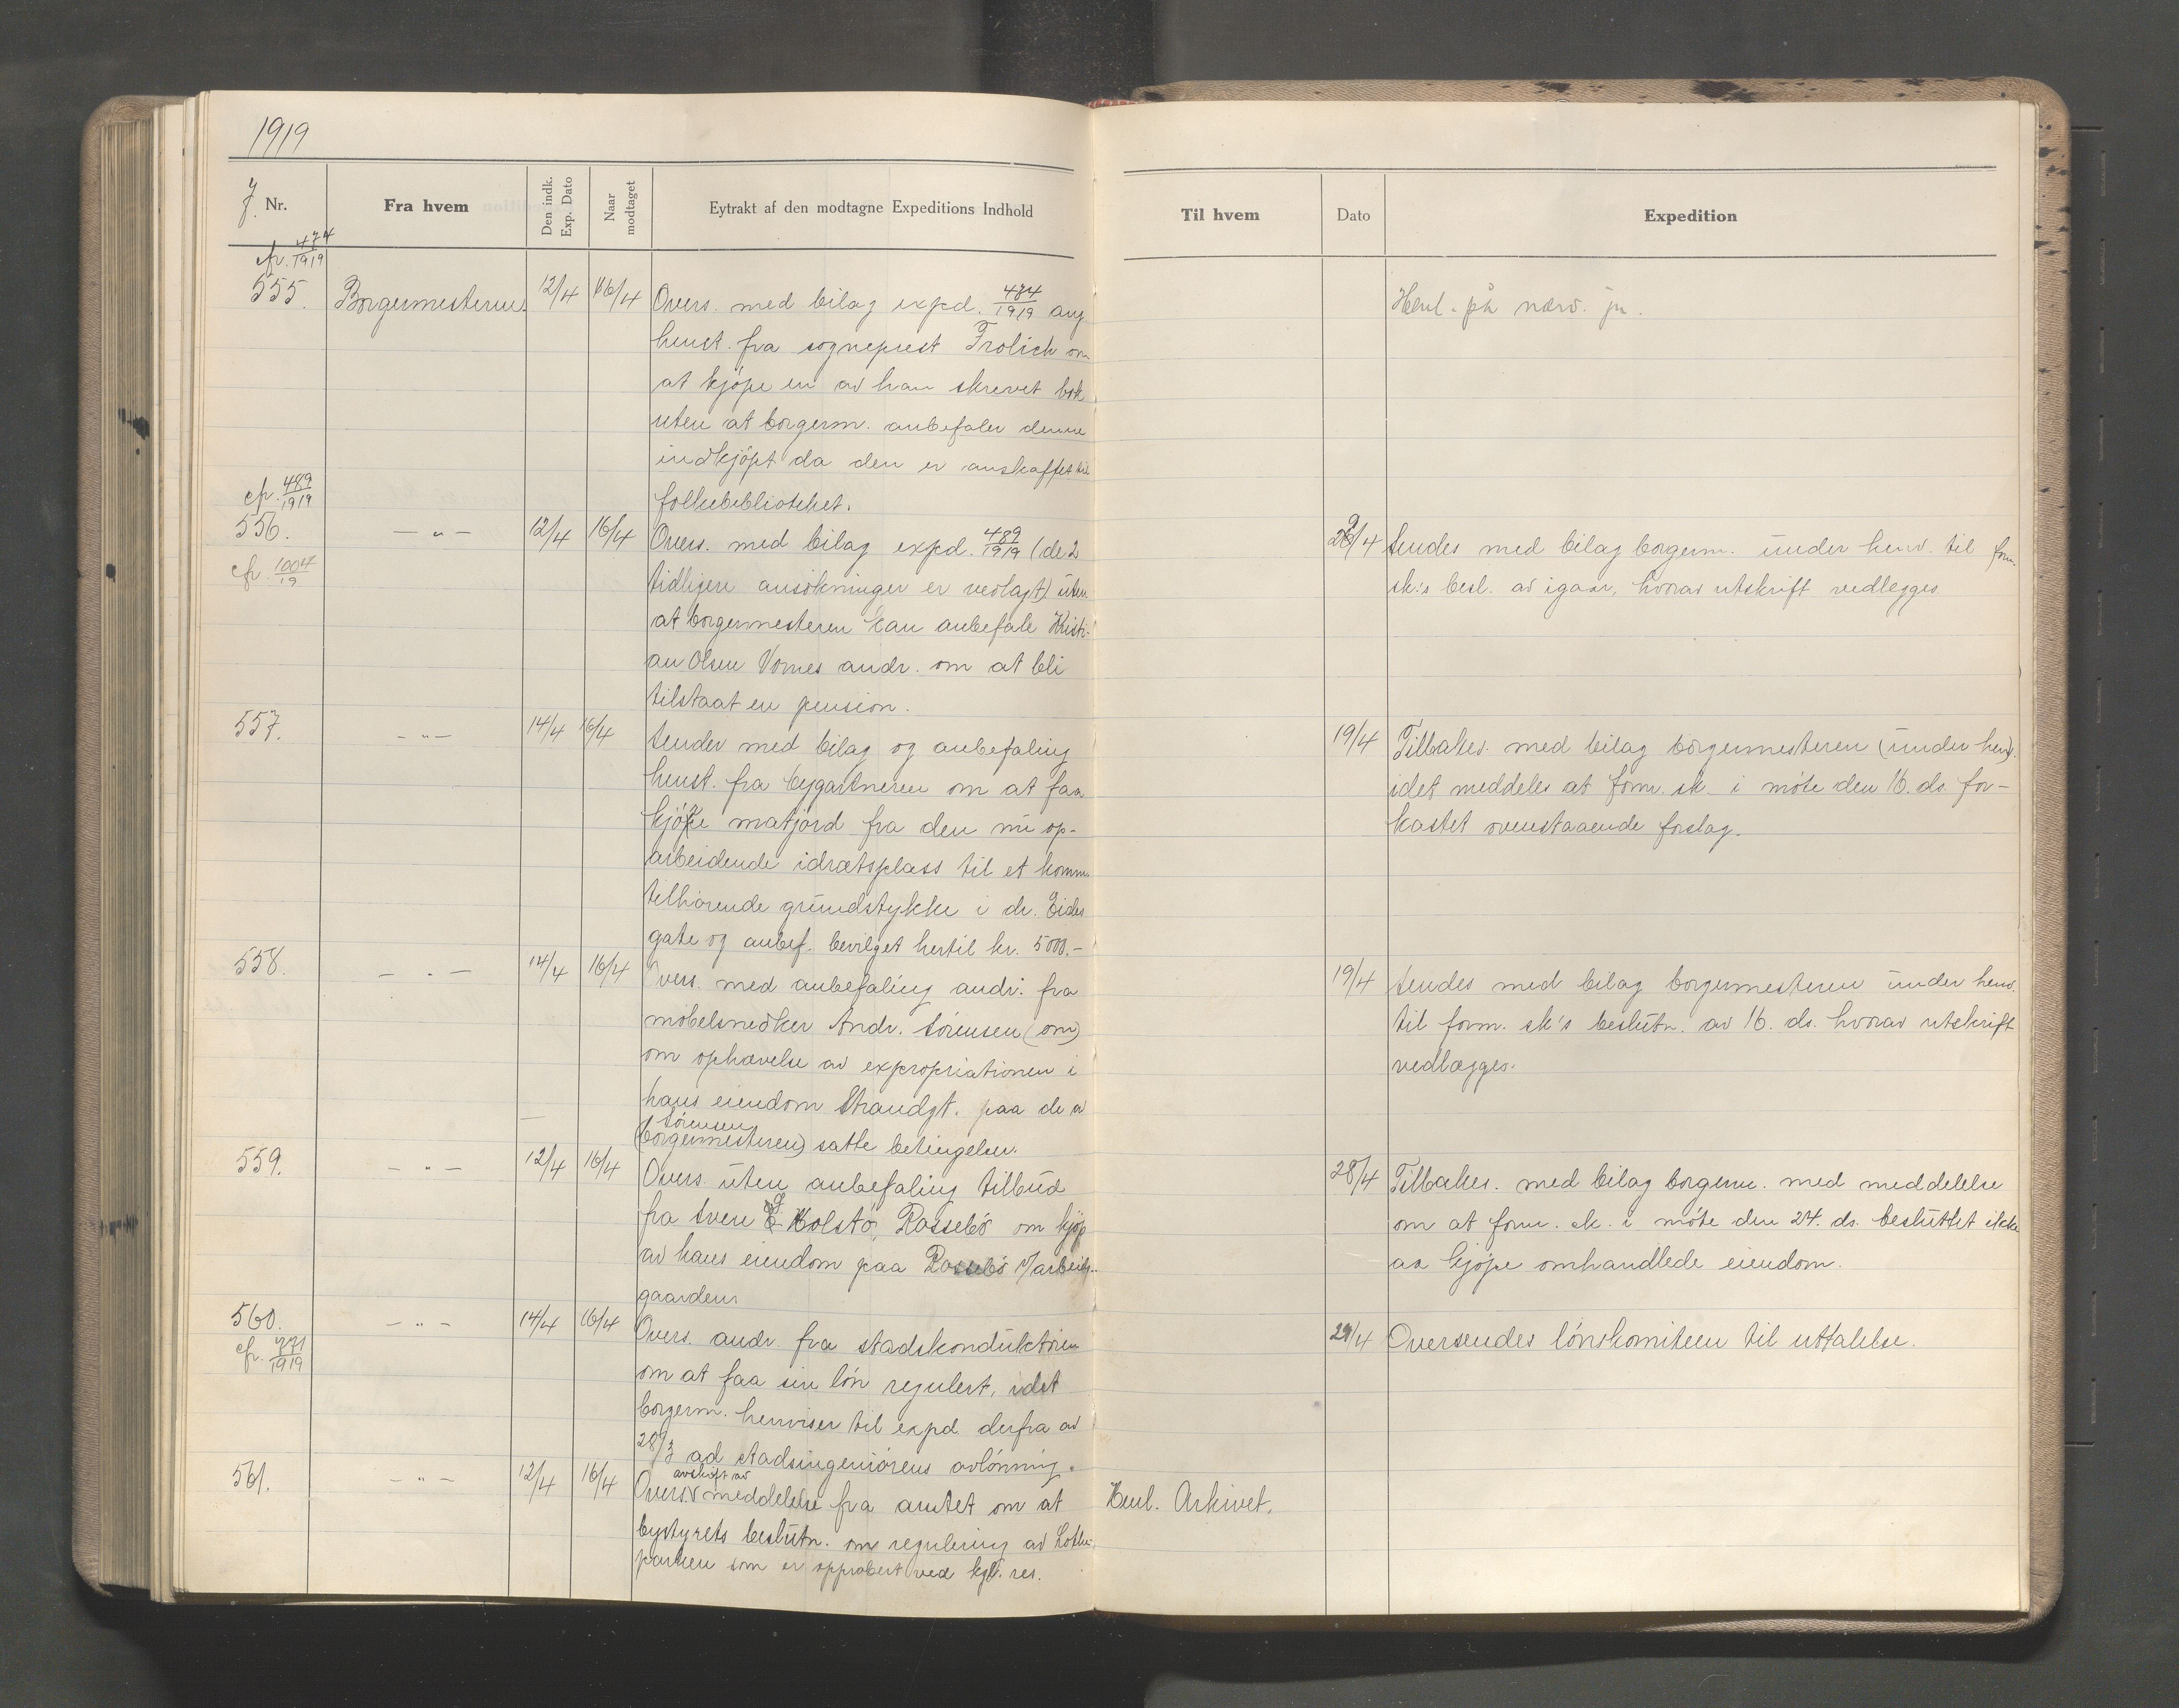 1919
J. Nr.
Fra hvem
Den indk. Exp. Dato
Naar modtaget
Eytrakt af den modtagne Expeditions Indhold
Til hvem
Dato
Expedition
cfr. 474/1919
555. Borgermesteren. 12/4 16/4 Overs. med bilag expd. 474/1919 ang.
henst. fra sogneprest Frolich om
at kjöpe en av han skrevet bok
uten at borgerm. anbefaler denne
indkjöpt da den er anskaffet til
folkebiblioteket.
Henl. på nærv. jn.
cfr. 489/1919
556. — " — 12/4 16/4 Overs. med bilag expd. 489/1919 (de 2
cfr. 1004/19
tidligere ansökninger er vedlagt) uten
at borgermesteren kan anbefale Kristi-
an Olsen Vornes andr. om at bli
tilstaat en pension.
29/4 Sendes med bilag borgerm. under henv. til form.
sk.'s besl. av igaar, hvorav utskrift vedlegges
557. — " — 14/4 16/4 Sender med bilag og anbefaling
henst. fra bygartneren om at faa
kjöpe matjord fra den nu op-
arbeidende idrætsplass til et komm.
tilhörende grundstykke i dr. Eides
gate og anbef. bevilget hertil kr. 5000.-
19/4 Tilbakes. med bilag borgermesteren (under henv).
idet meddeles at form. sk. i möte den 16. ds. for-
kastet ovenstaaende forslag.
558. — " — 14/4 16/4 Overs. med anbefaling andr. fra
möbelsnedker Andr. Sörensen (om)
om ophævelse av expropriationen i
hans eiendom Strandgt. paa de av
Sörensen
(borgermesteren) satte betingelser.
19/4 Sendes med bilag borgermesteren under henv.
til form. sk's beslutn. av 16. ds. hvorav utskrift
vedlægges.
559. — " — 12/4 16/4 Overs. uten anbefaling tilbud
fra Sven Kolstö, Rossebö om kjöp
av hans eiendom paa Rossebö v/arbeids-
gaarden
28/4 Tilbakes. med bilag borgerm. med meddelelse
om at form. sk. i möte den 24. ds. besluttet ikke
aa kjöpe omhandlede eiendom.
560. — " — 14/4 16/4 Overs. andr. fra stadskonduktören
cfr. 771/1919
om at faa sin lön regulert, idet
borgerm. henviser til expd. derfra av
28/3 ad stadsingeniörens avlönning.
29/4 Oversendes lönskomiteen til uttalelse.
561. — " — 12/4 16/4 avskrift av
Overs. v meddelelse fra amtet om at
bystyrets beslutn. om regulering av Lothe-
parken som er approbert ved kgl. res.
Henl. Arkivet.